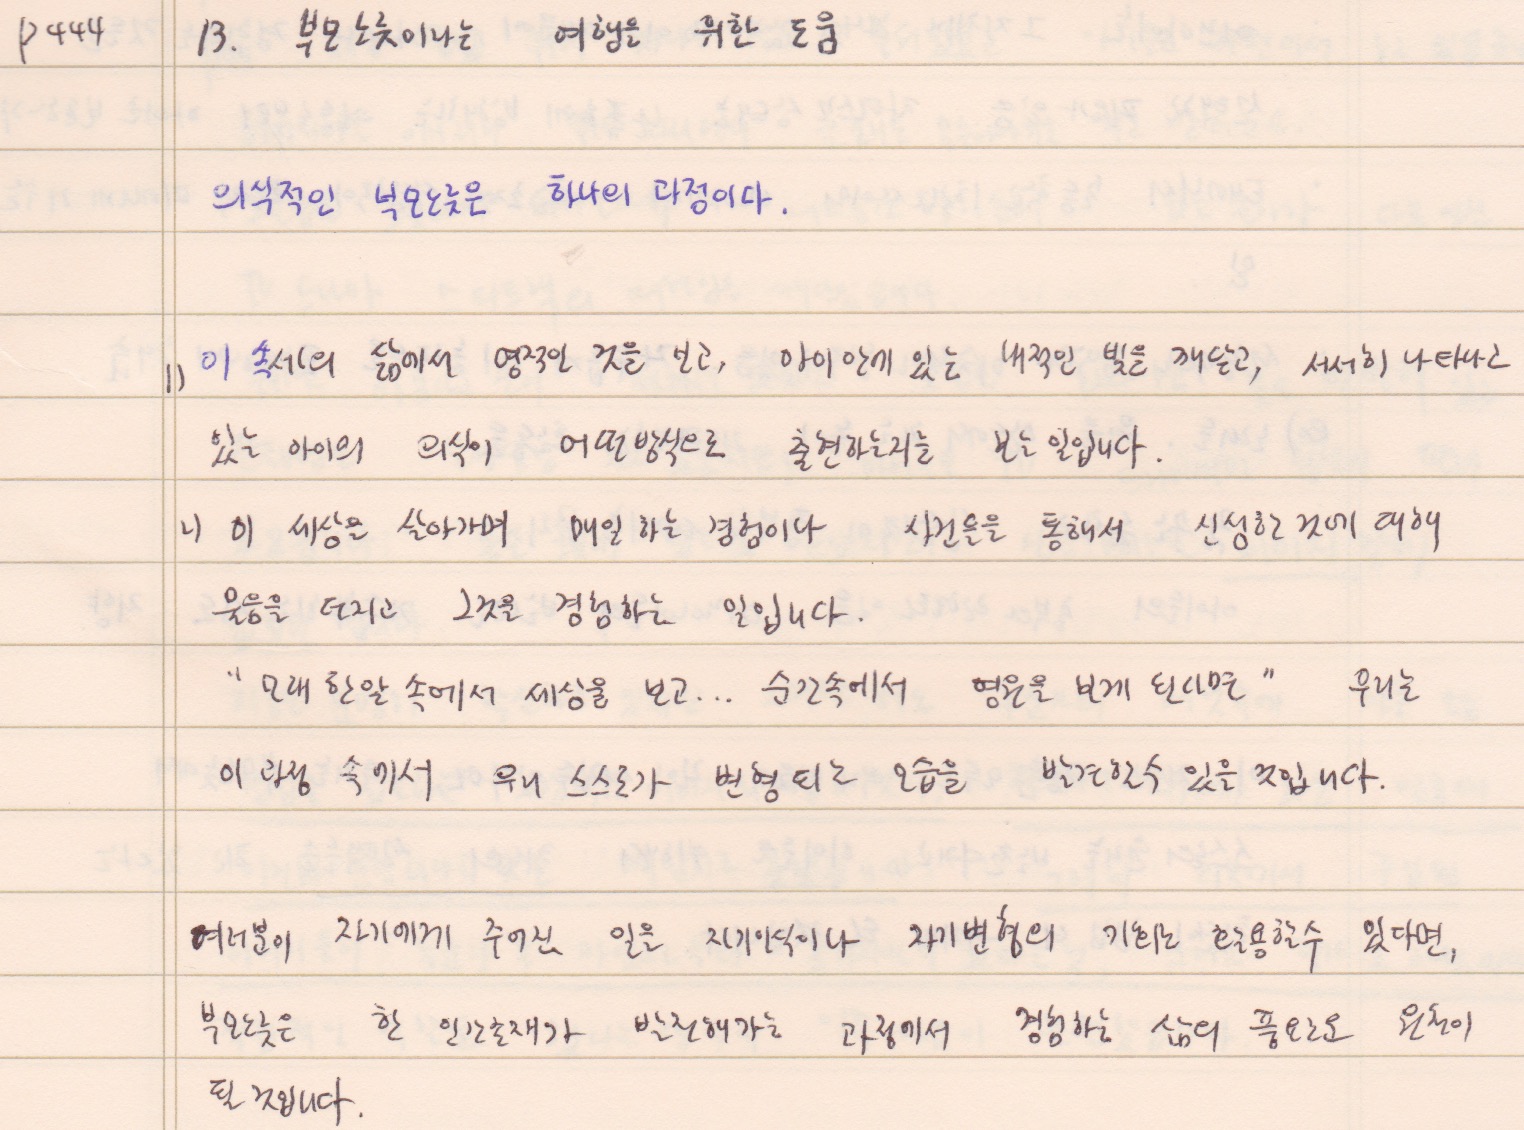 P444 13. 부모노릇이라는 여행을 위한 도움
의식적인 부모노릇은 하나의 과정이다.
1) 이 속세의 삶에서 영적인 것을 보고, 아이안에 있는 내적인 빛을 깨닫고, 서서히 나타나고
있는 아이의 의식이 어떤방식으로 출현하는지를 보는 일입니다.
2) 이 세상을 살아가며 매일 하는 경험이나 사건들을 통해서 신성한 것에 대해
물음을 던지고 그것을 경험하는 일입니다.
"모래 한알 속에서 세상을 보고... 순간속에서 영원을 보게 된다면" 우리는
이 과정 속에서 우리 스스로가 변형되는 모습을 발견할수 있을 것입니다.
여러분이 자기에게 주어진 일을 자기인식이나 자기변형의 기회로 활용할수 있다면,
부모노릇은 한 인간존재가 발전해가는 과정에서 경험하는 삶의 풍요로운 원천이
될 것입니다.